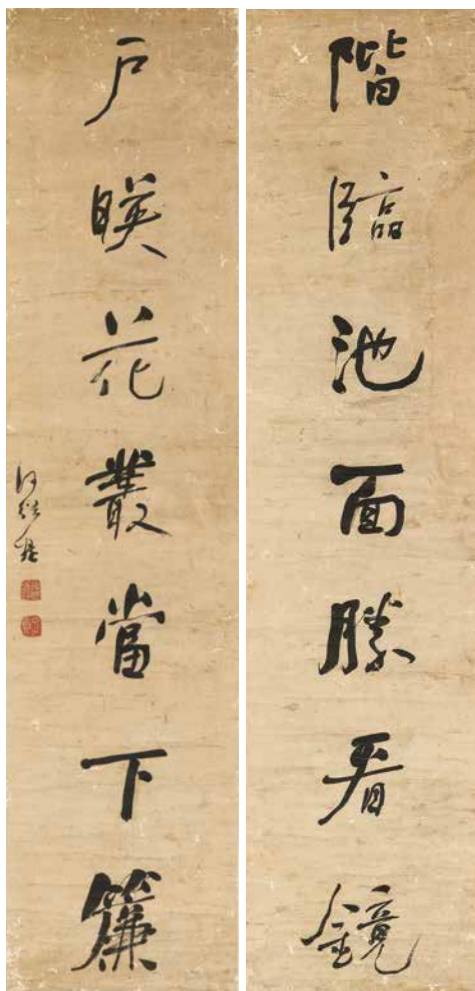 階臨池面勝看鏡
戶映花叢當下簾
何紹基